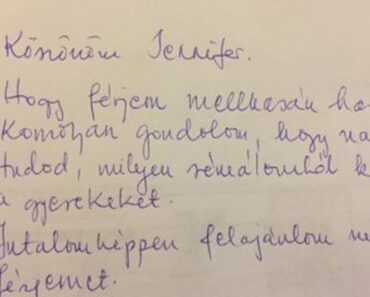 Köszönöm Jennifer.
Hogy férjem mellkasán ha
Komolyan gondolom, hogy na
tudod, milyen rémálomból k
a gyerekeket.
Jutalomképpen felajánlom
férjemet.